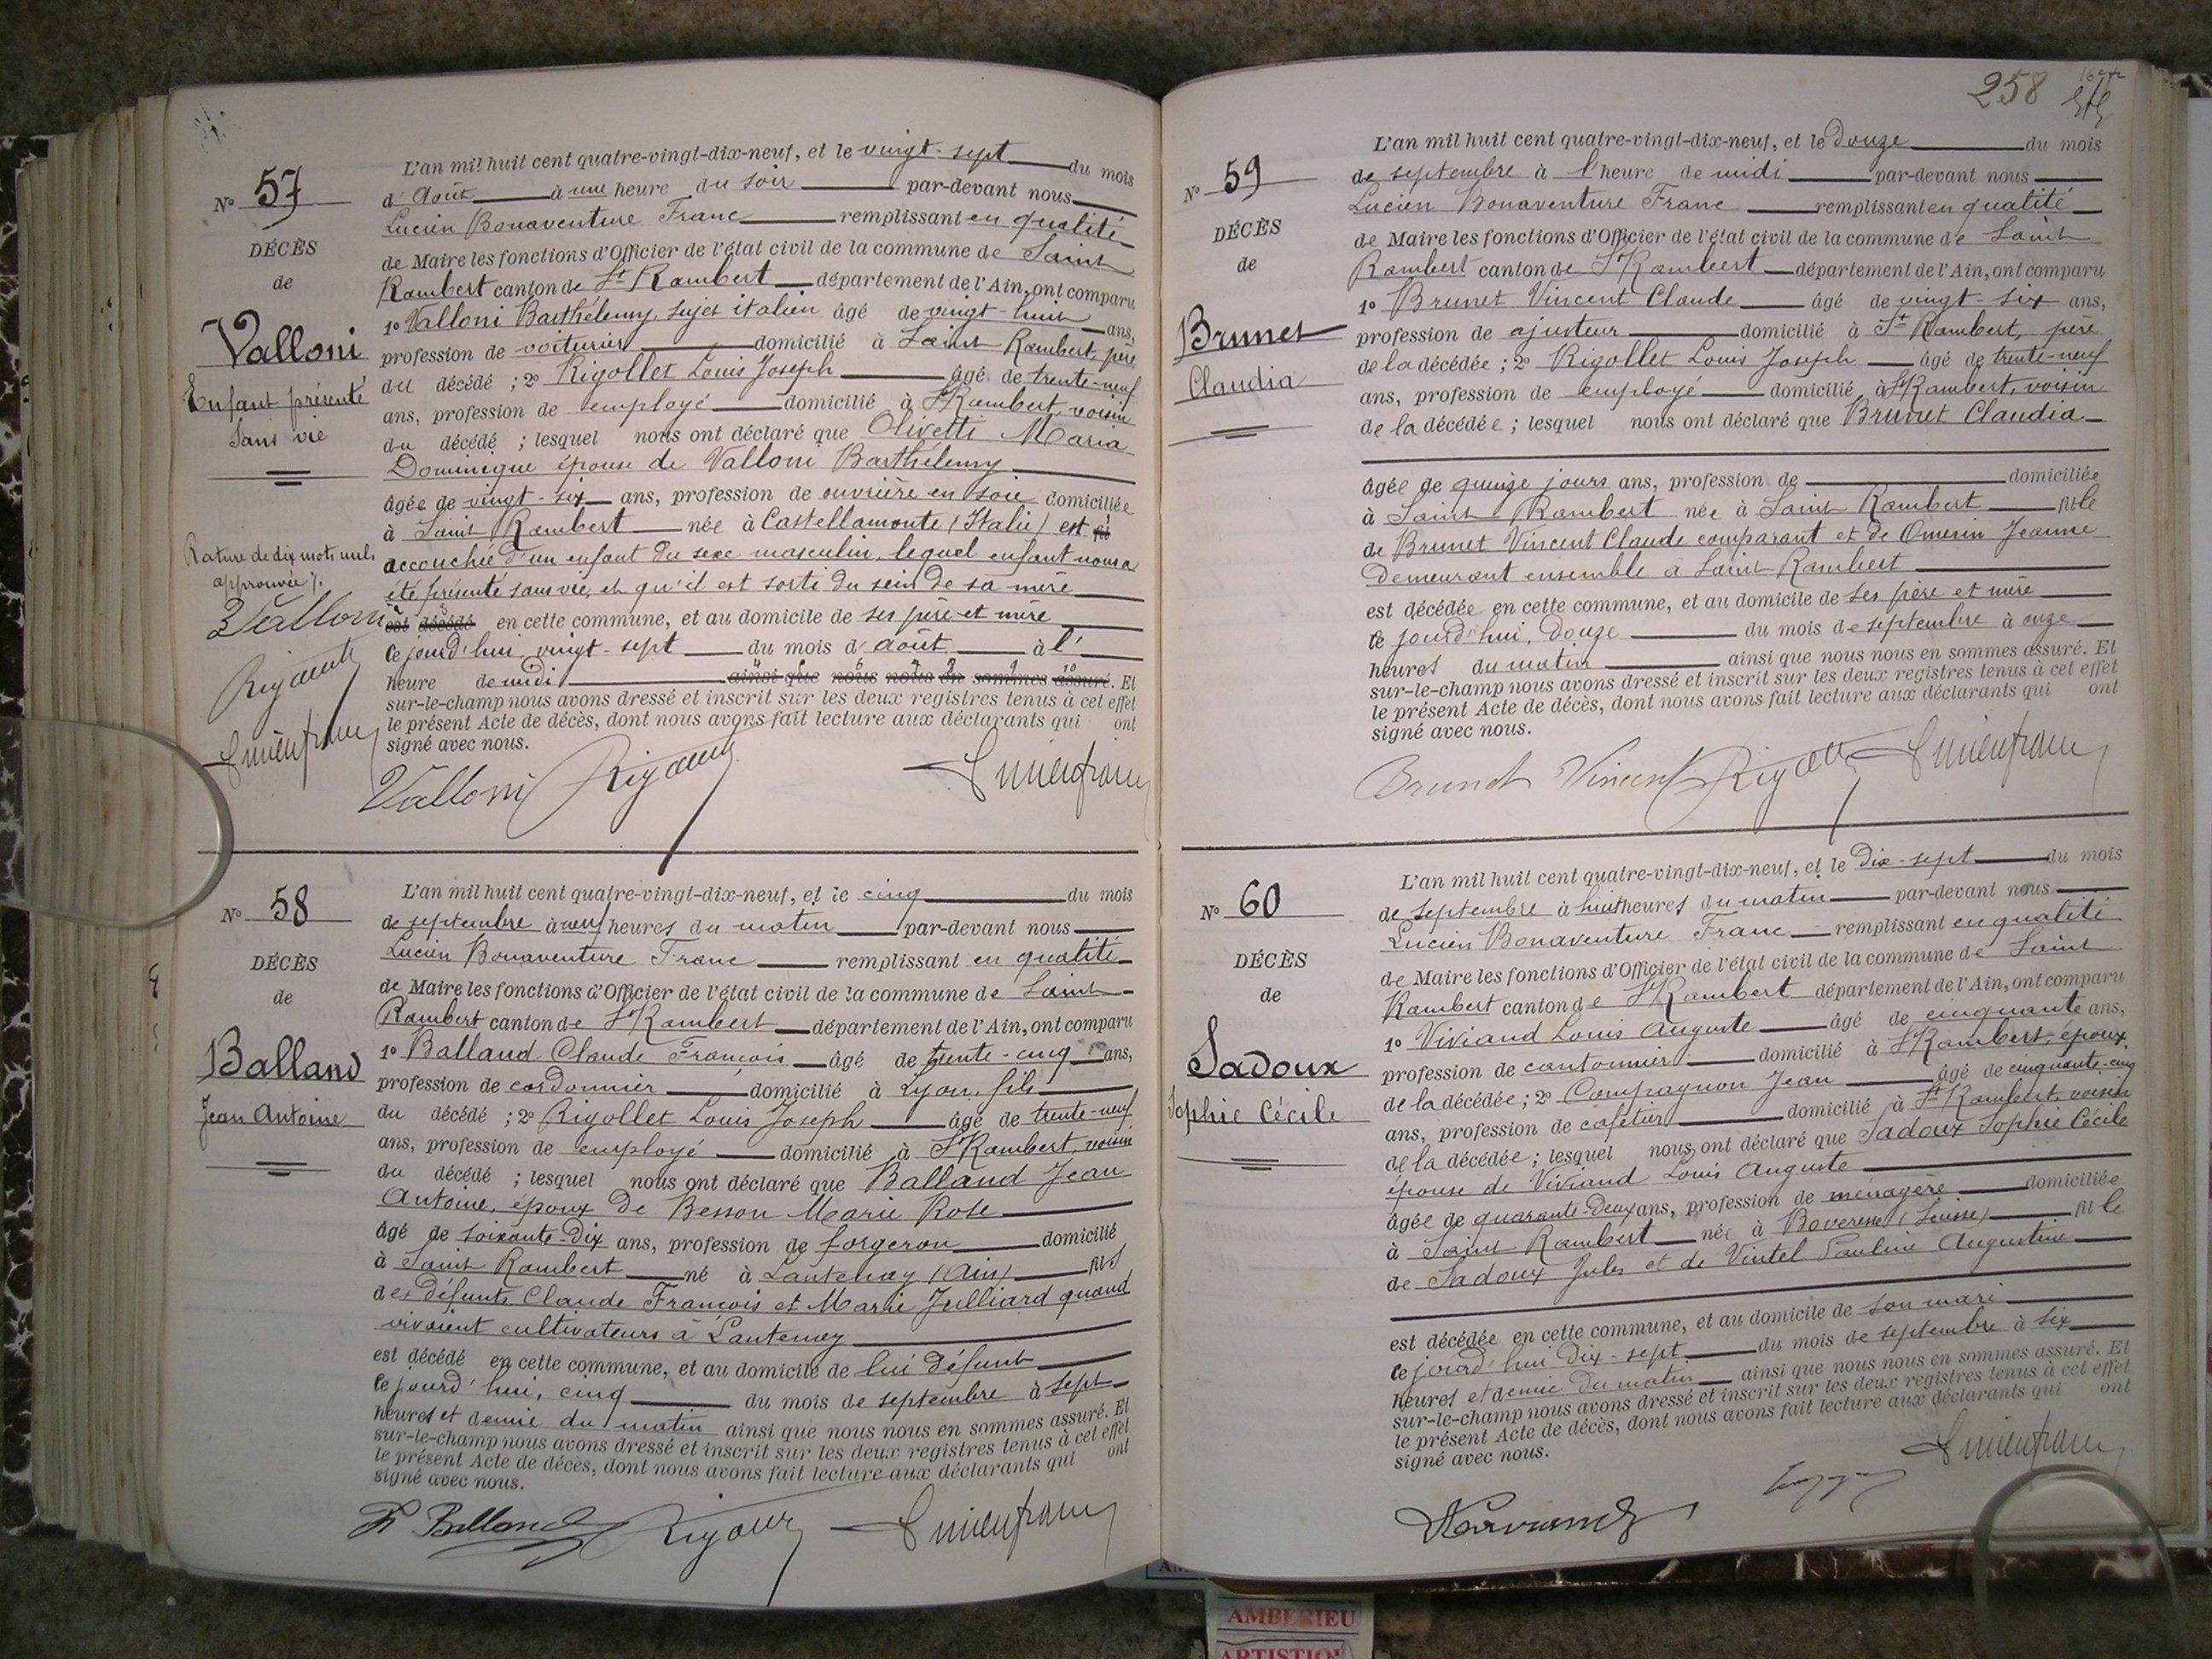 N° 57
DÉCÈS
de
Valloni
Enfant présenté
sans vie
Rature de dix mots nuls
approuvée
Valloni
L'an mil huit cent quatre-vingt-dix-neuf, et le vingt-sept du mois
d'Août à une heure du soir par-devant nous
Lucien Bonaventure Franc remplissant en qualité
de Maire les fonctions d'Officier de l'état civil de la commune de Saint
Rambert canton de St Rambert département de l'Ain, ont comparu
1° Valloni Barthélemy, sujet italien âgé de vingt-huit ans,
profession de voiturier domicilié à Saint Rambert, père
du décédé ; 2° Rigollet Louis Joseph âgé de trente-neuf
ans, profession de employé domicilié à St Rambert, voisin
du décédé ; lesquel nous ont déclaré que Olivetti Maria
Dominique épouse de Valloni Barthélemy
âgée de vingt-six ans, profession de ouvrière en soie domiciliée
à Saint Rambert née à Castellamonte (Italie) est fil
accouchée d'un enfant du sexe masculin, lequel enfant nous a
été présenté sans vie, et qu'il est sorti du sein de sa mère
est décédé en cette commune, et au domicile de ses père et mère
ce jourd'hui, vingt-sept du mois d'août à l'
heure de midi ainsi que nous nous en sommes assuré. Et
sur-le-champ nous avons dressé et inscrit sur les deux registres tenus à cet effet
le présent Acte de décès, dont nous avons fait lecture aux déclarants qui ont
signé avec nous.
Valloni
N° 58
DÉCÈS
de
Balland
Jean Antoine
L'an mil huit cent quatre-vingt-dix-neuf, et le cinq du mois
de septembre à neuf heures du matin par-devant nous
Lucien Bonaventure Franc remplissant en qualité
de Maire les fonctions d'Officier de l'état civil de la commune de Saint
Rambert canton de St Rambert département de l'Ain, ont comparu
1° Balland Claude François âgé de trente-cinq ans,
profession de cordonnier domicilié à Lyon, fils
du décédé ; 2° Rigollet Louis Joseph âgé de trente-neuf
ans, profession de employé domicilié à St Rambert, voisin
du décédé ; lesquel nous ont déclaré que Balland Jean
Antoine, époux de Besson Marie Rose
âgé de soixante-dix ans, profession de forgeron domicilié
à Saint Rambert né à Lantenay (Ain) fils
des défunts Claude François et Marie Julliard quand
vivaient cultivateurs à Lantenay
est décédé en cette commune, et au domicile de lui défunt
ce jourd'hui, cinq du mois de septembre à sept
heures et demie du matin ainsi que nous nous en sommes assuré. Et
sur-le-champ nous avons dressé et inscrit sur les deux registres tenus à cet effet
le présent Acte de décès, dont nous avons fait lecture aux déclarants qui ont
signé avec nous.
Balland
258
N° 59
DÉCÈS
de
Brunet
Claudia
L'an mil huit cent quatre-vingt-dix-neuf, et le douze du mois
de septembre à l'heure de midi par-devant nous
Lucien Bonaventure Franc remplissant en qualité
de Maire les fonctions d'Officier de l'état civil de la commune de Saint
Rambert canton de St Rambert département de l'Ain, ont comparu
1° Brunet Vincent Claude âgé de vingt-six ans,
profession de ajusteur domicilié à St Rambert, père
de la décédée ; 2° Rigollet Louis Joseph âgé de trente-neuf
ans, profession de employé domicilié à St Rambert, voisin
de la décédée ; lesquel nous ont déclaré que Brunet Claudia
âgée de quinze jours ans, profession de domiciliée
à Saint Rambert née à Saint Rambert fille
de Brunet Vincent Claude comparant et de Omerin Jeanne
demeurant ensemble à Saint Rambert
est décédée en cette commune, et au domicile de ses père et mère
ce jourd'hui, douze du mois de septembre à onze
heures du matin ainsi que nous nous en sommes assuré. Et
sur-le-champ nous avons dressé et inscrit sur les deux registres tenus à cet effet
le présent Acte de décès, dont nous avons fait lecture aux déclarants qui ont
signé avec nous.
Brunet Vincent
N° 60
DÉCÈS
de
Sadoux
Sophie Cécile
L'an mil huit cent quatre-vingt-dix-neuf, et le dix-sept du mois
de septembre à huit heures du matin par-devant nous
Lucien Bonaventure Franc remplissant en qualité
de Maire les fonctions d'Officier de l'état civil de la commune de Saint
Rambert canton de St Rambert département de l'Ain, ont comparu
1° Viviand Louis Auguste âgé de cinquante ans,
profession de cantonnier domicilié à St Rambert, époux
de la décédée ; 2° Compagnon Jean âgé de cinquante-cinq
ans, profession de cafetier domicilié à St Rambert, voisin
de la décédée ; lesquel nous ont déclaré que Sadoux Sophie Cécile
épouse de Viviand Louis Auguste
âgée de quarante-deux ans, profession de ménagère domiciliée
à Saint Rambert née à Boveresse (Suisse) fille
de Sadoux Jules et de Vintel Pauline Augustine
est décédée en cette commune, et au domicile de son mari
ce jourd'hui dix-sept du mois de septembre à six
heures et demie du matin ainsi que nous nous en sommes assuré. Et
sur-le-champ nous avons dressé et inscrit sur les deux registres tenus à cet effet
le présent Acte de décès, dont nous avons fait lecture aux déclarants qui ont
signé avec nous.
AMBERIEU